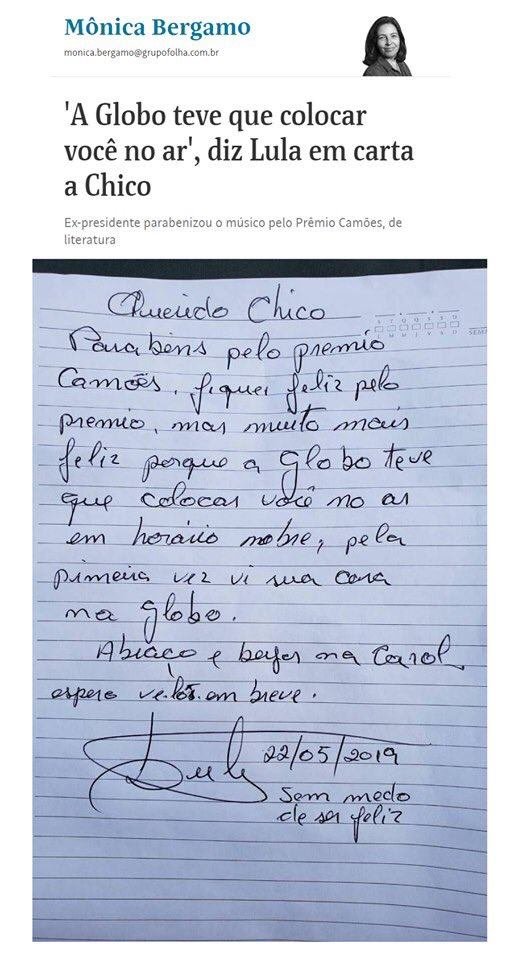 Mônica Bergamo
monica.bergamo@grupofolha.com.br
'A Globo teve que colocar
você no ar', diz Lula em carta
a Chico
Ex-presidente parabenizou o músico pelo Prêmio Camões, de
literatura
Querido Chico
Parabens pelo premio
Camões, fiquei feliz pelo
premio, mas muito mais
feliz porque a Globo teve
que colocar você no ar
em horário nobre, pela
primeira vez vi sua cara
na Globo.
Abraço e beijos na Carol,
espero ve-los em breve.
Lula 22/05/2019
Sem medo
de ser feliz